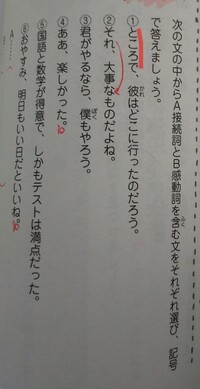 次の文の中からA接続詞とB感動詞を含む文をそれぞれ選び、記号
で答えましょう。
①ところで、彼はどこに行ったのだろう。
②それ、大事なものだよね。
③君がやるなら、僕もやろう。
④ああ、楽しかった。
⑤国語と数学が得意で、しかもテストは満点だった。
⑥おやすみ、明日もいい日だといいね。